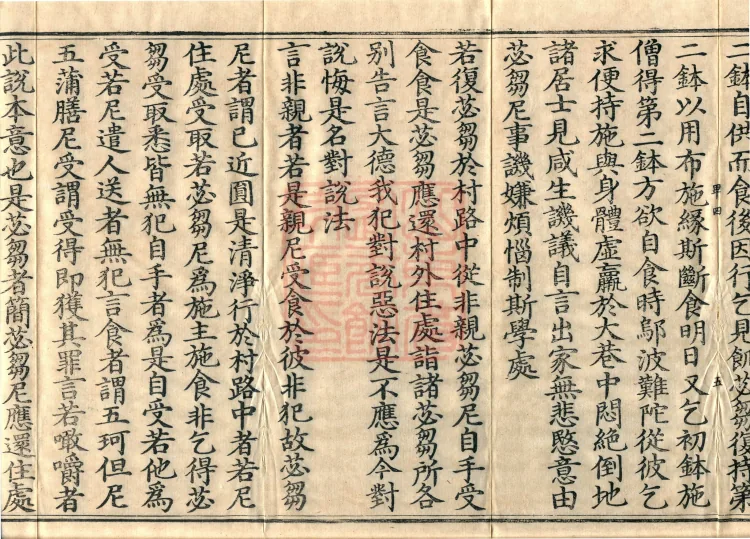 二鉢自供而食後因行乞見餓苾芻復持第
二鉢以用布施緣斯斷食明日又乞初鉢施
僧得第二鉢方欲自食時鄔波難陀從彼乞
求便持施與身體虛羸於大巷中悶絕倒地
諸居士見咸生譏議自言出家無悲愍意由
苾芻尼事譏嫌煩惱制斯學處
若復苾芻於村路中從非親苾芻尼自手受
食食是苾芻應還村外住處詣諸苾芻所各
別告言大德我犯對說惡法是不應為今對
說悔是名對說法
言非親者若是親尼受食於彼非犯故苾芻
尼者謂已近圓是清淨行於村路中者若尼
住處受取若苾芻尼為施主施食非乞得苾
芻受取悉皆無犯自手者為是自受若他為
受若尼遣人送者無犯言食者謂五珂但尼
五蒲膳尼受謂受得即獲其罪言若噉嚼者
此說本意也是苾芻者簡苾芻尼應還住處
甲四
五